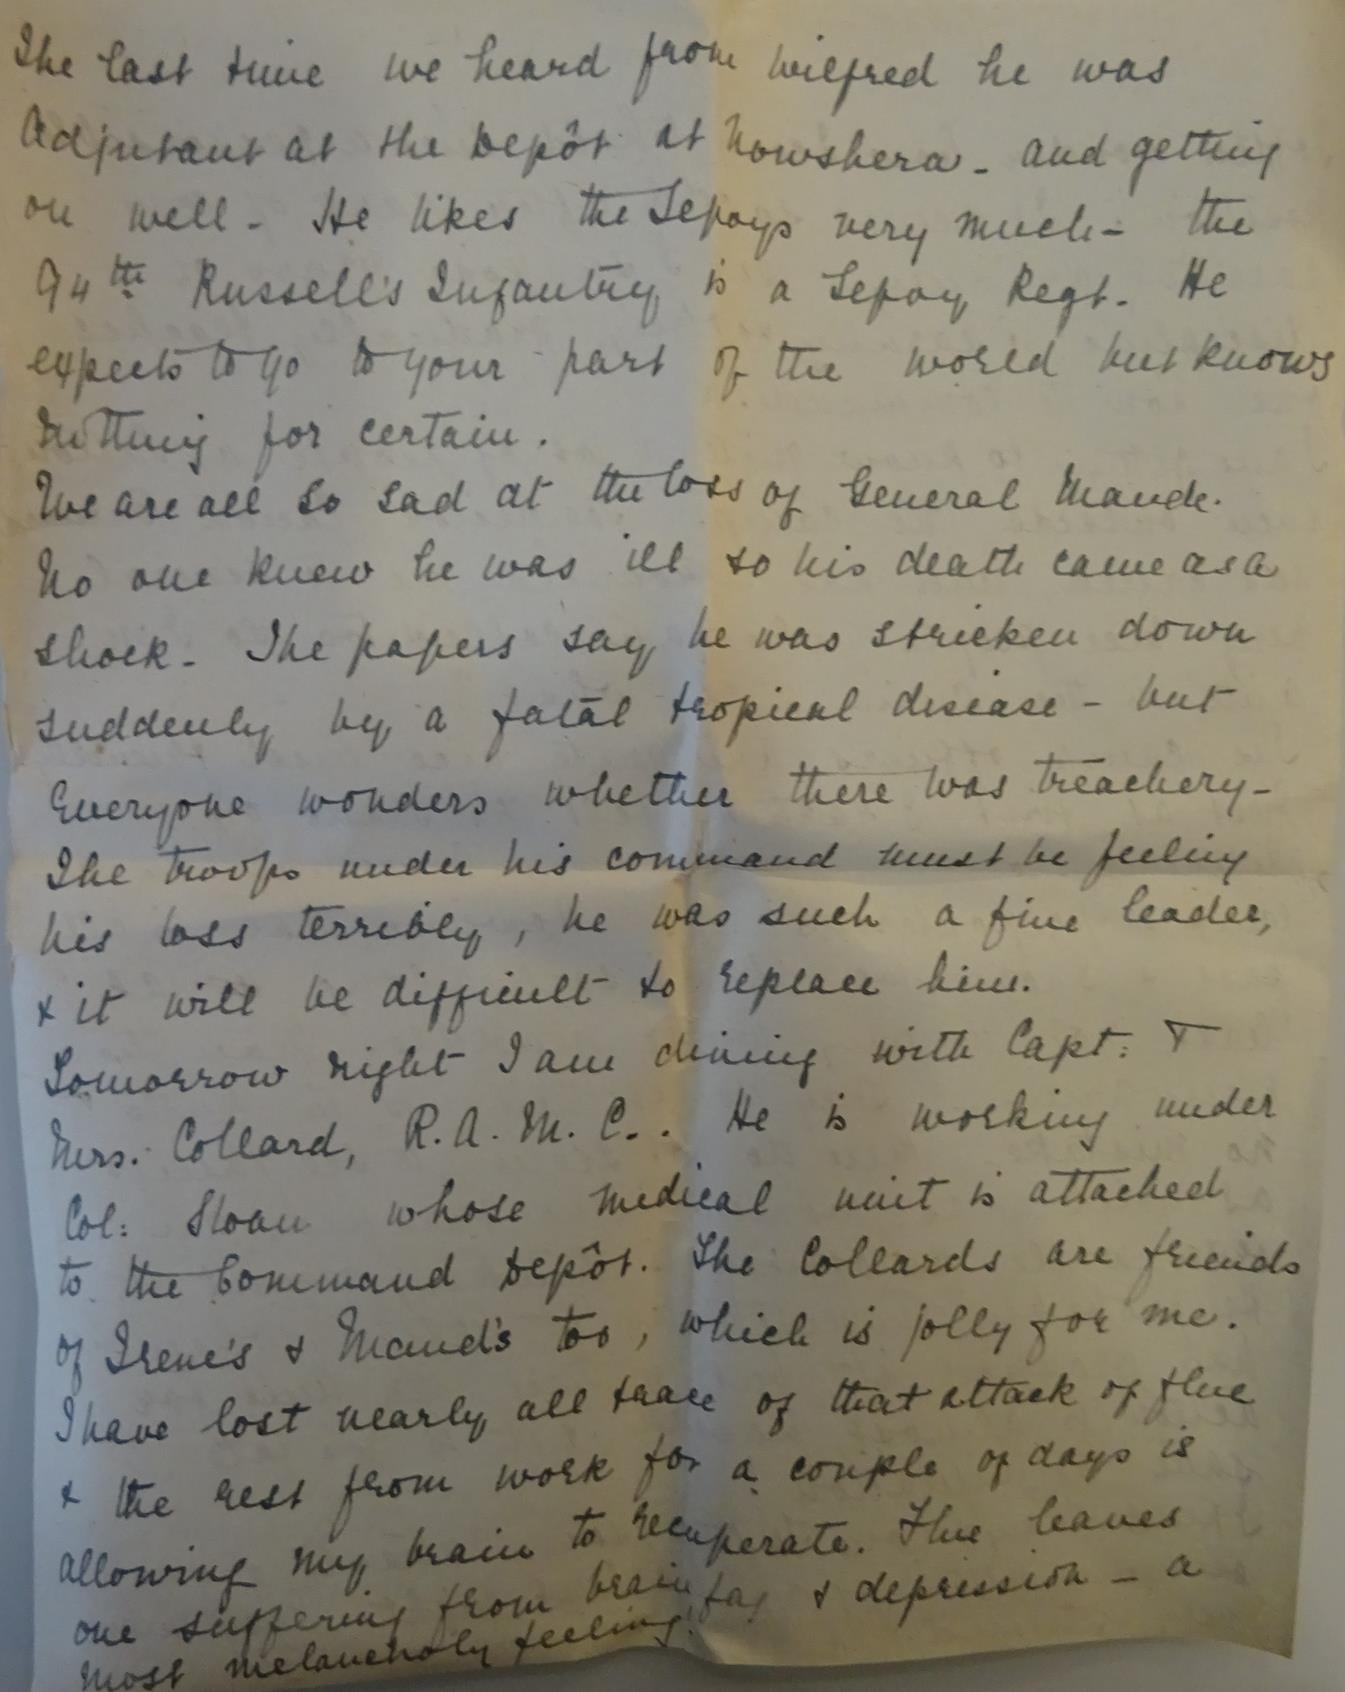 The last time we heard from Wilfred he was
Adjutant at the Depôt at Nowshera - and getting
on well - He likes the Sepoys very much - the
94th Russell's Infantry is a Sepoy Regt. He
expects to go to your part of the world but knows
nothing for certain.
We are all so sad at the loss of General Maude.
No one knew he was ill so his death came as a
shock - The papers say he was stricken down
suddenly by a fatal tropical disease - but
Everyone wonders whether there was treachery -
The troops under his command must be feeling
his loss terribly, he was such a fine leader,
& it will be difficult to replace him.
Tomorrow night I am dining with Capt: &
Mrs. Collard, R.A.M.C.. He is working under
Col: Sloan whose medical unit is attached
to the Command Depôt. The Collards are friends
of Irene's & Maud's too, which is jolly for me.
I have lost nearly all trace of that attack of flue
& the rest from work for a couple of days is
allowing my brain to recuperate. Flue leaves
one suffering from brain fag & depression - a
most melancholy feeling!